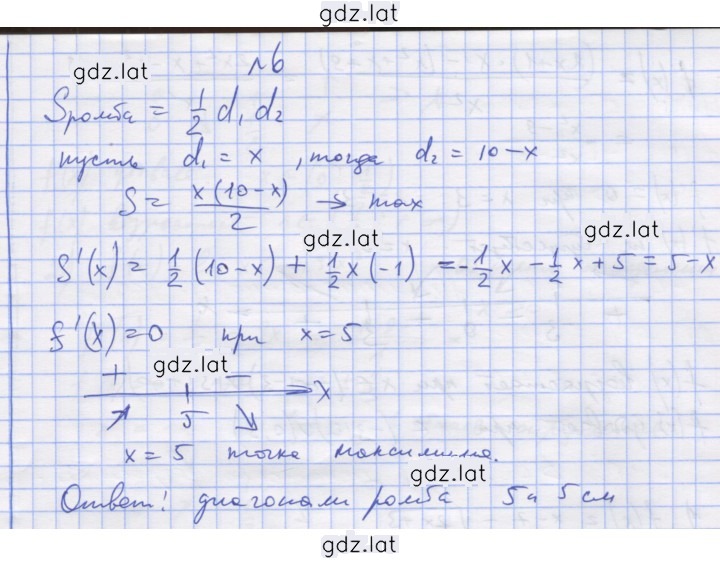 gdz.lat
gdz.lat
№6
Sромба = 1/2 d₁ d₂
пусть d₁ = x , тогда d₂ = 10 - x
S = x(10-x)/2 → max
gdz.lat
gdz.lat
S'(x) = 1/2 (10-x) + 1/2 x (-1) = -1/2 x - 1/2 x + 5 = 5 - x
f'(x) = 0 при x = 5
gdz.lat
+ -
x
↗ 5 ↘
x = 5 точка максимума.
gdz.lat
Ответ: диагонали ромба 5 и 5 см
gdz.lat